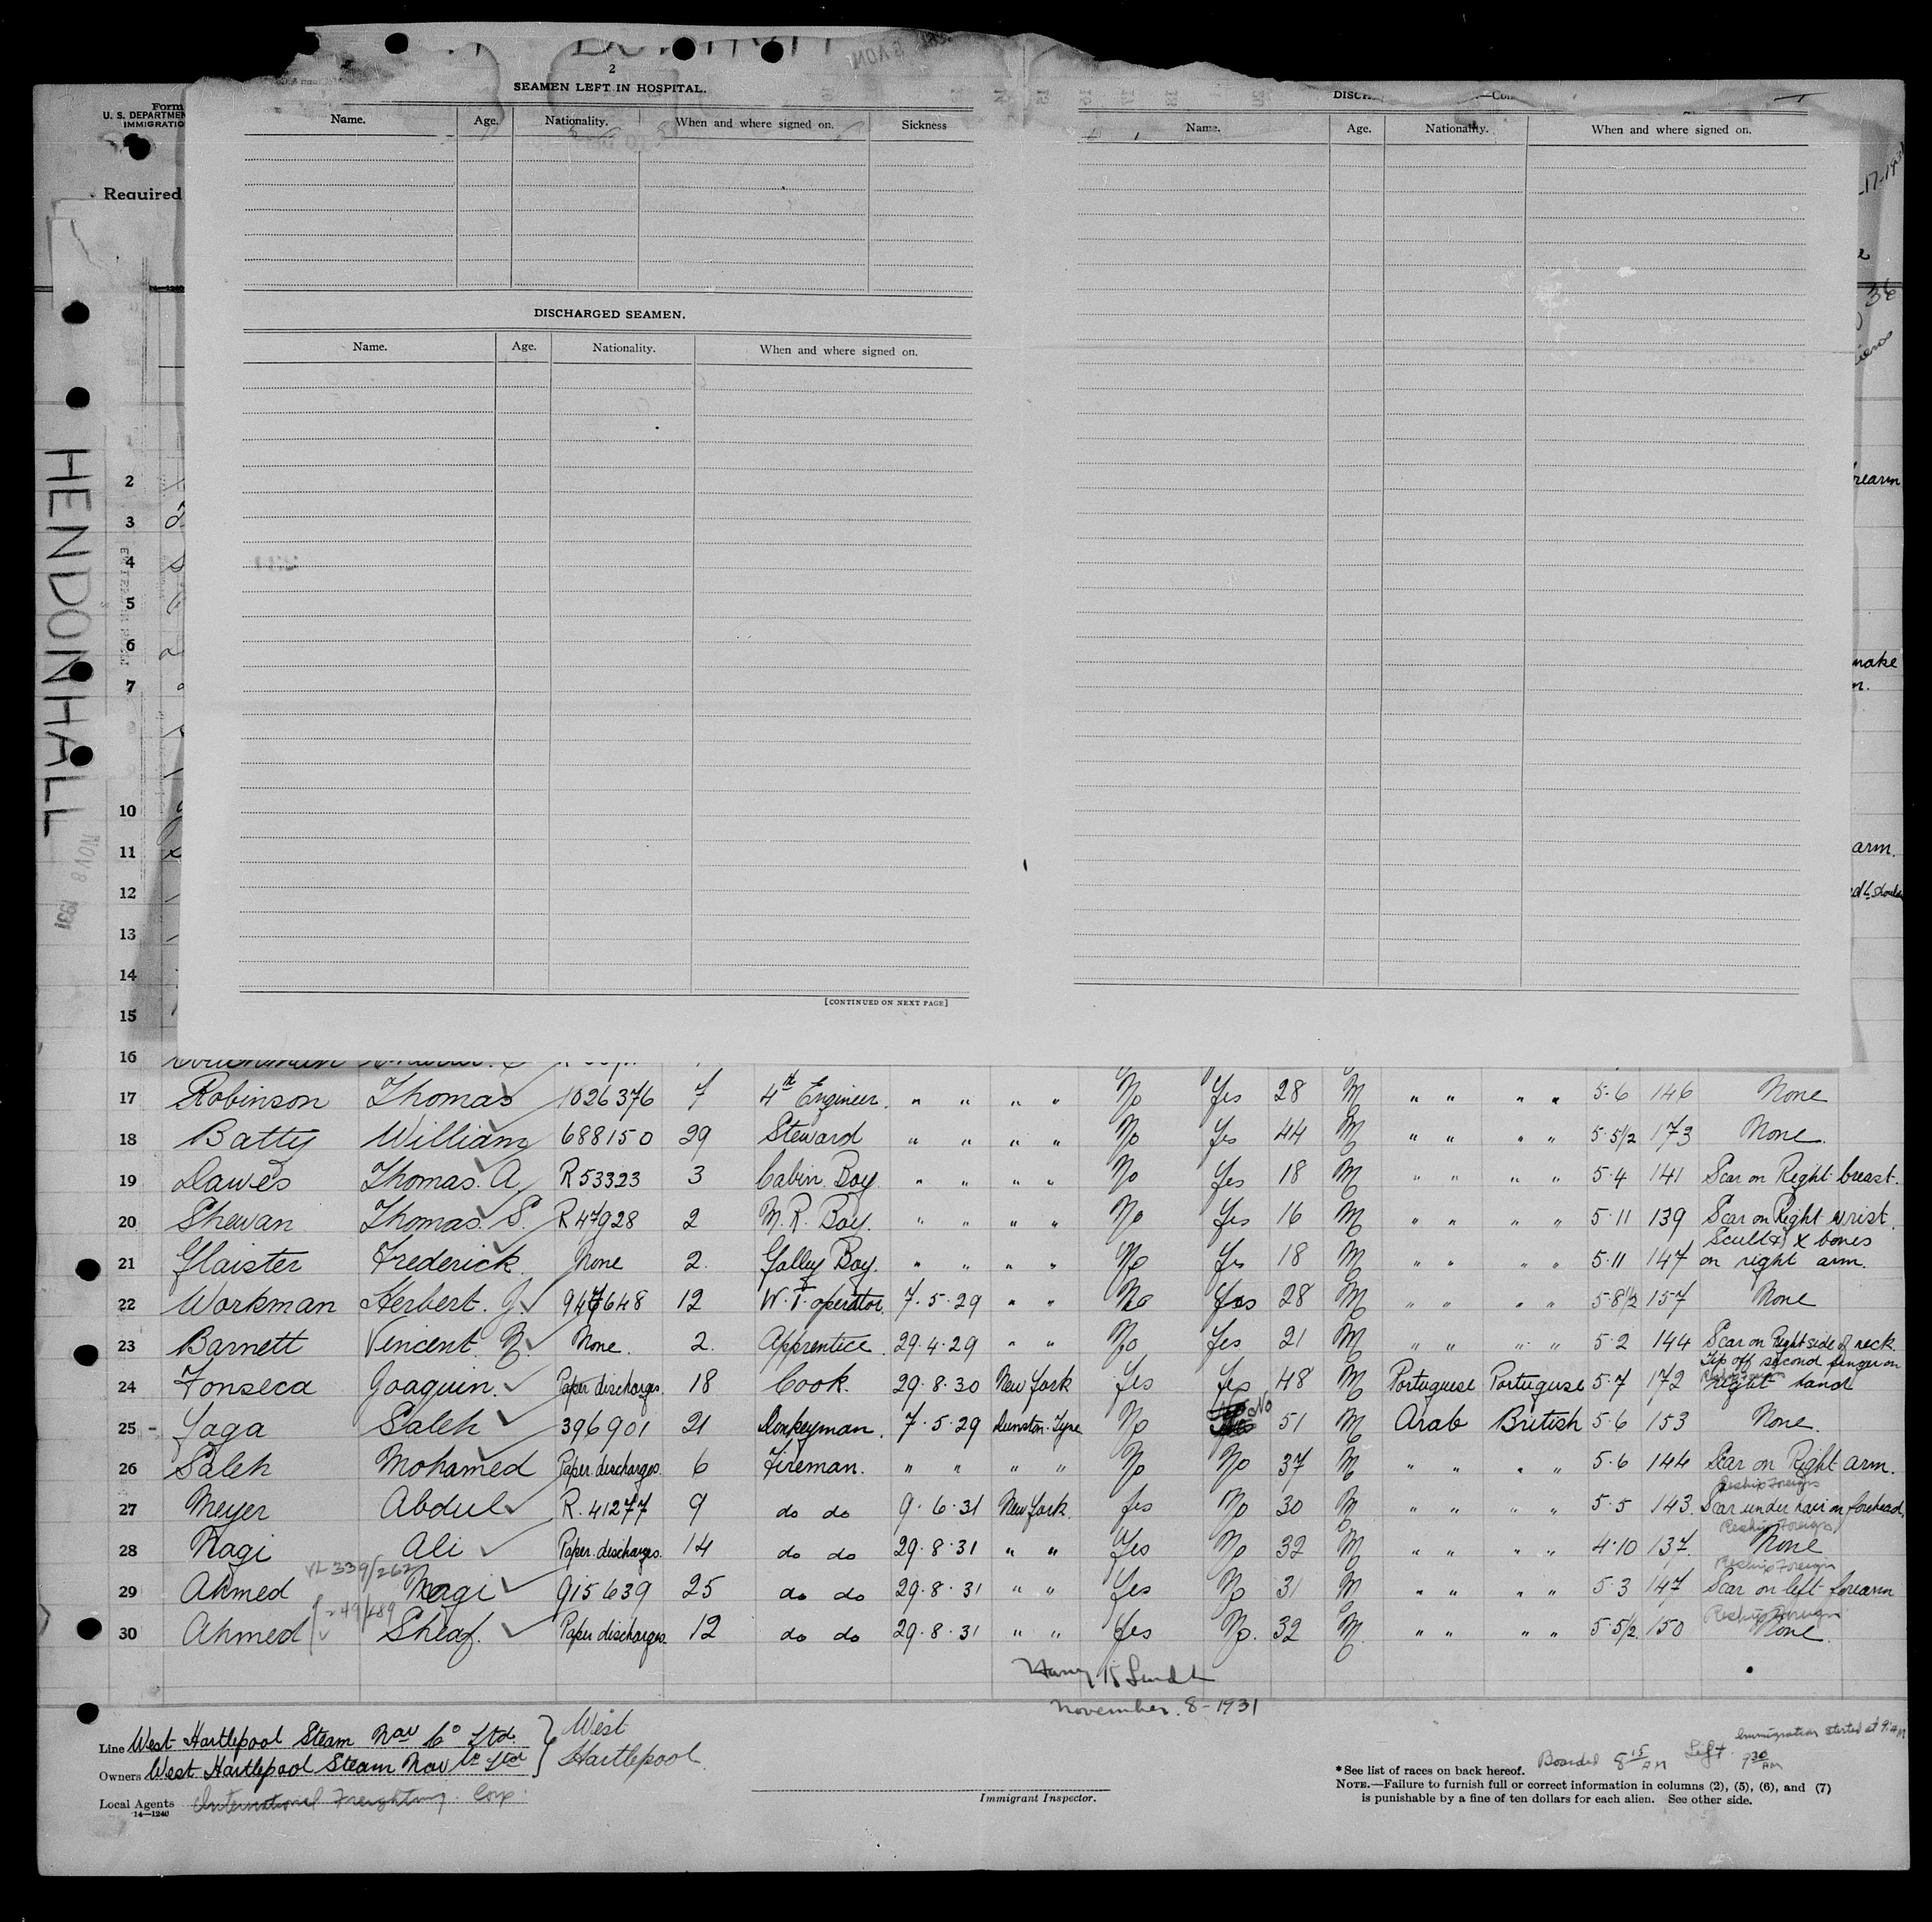 2
SEAMEN LEFT IN HOSPITAL.
Name. Age. Nationality. When and where signed on. Sickness
DISCHARGED SEAMEN.
Name. Age. Nationality. When and where signed on.
[CONTINUED ON NEXT PAGE]
Name. Age. Nationality. When and where signed on.
Form
U. S. DEPARTMEN
IMMIGRATIO
Required
HENDONHALL
NOV 8 1931
2
3
4
5
6
7
10
11
12
13
14
15
16
17 Robinson Thomas 1026376 7 4th Engineer. " " " " No Yes 28 M " " " " 5·6 146 None
18 Batty William 688150 29 Steward " " " " No Yes 44 M " " " " 5·5½ 173 None.
19 Dawes Thomas. A R 53323 3 Cabin Boy " " " " No Yes 18 M " " " " 5·4 141 Scar on Right breast.
20 Shewan Thomas. S. R 47928 2 M. R. Boy. " " " " No Yes 16 M " " " " 5·11 139 Scar on Right wrist.
21 Glaister Frederick. None 2. Galley Boy. " " " " No Yes 18 M " " " " 5·11 147 Scull & X bones on right arm.
22 Workman Herbert. J. 947648 12 W. T. operator. 7·5·29 " " No Yes 28 M " " " " 5·8½ 157 None
23 Barnett Vincent. N. None. 2. Apprentice 29·4·29 " " No Yes 21 M " " " " 5·2 144 Scar on Right side of neck.
24 Fonseca Joaquin. Paper discharges. 18 Cook. 29·8·30 New York Yes Yes 48 M Portuguese Portuguese 5·7 172 Tip off second finger on right hand
25 - Gaga Saleh 396901 21 Donkeyman. 7·5·29 Dunston-Tyne No No 51 M Arab British 5·6 153 None.
26 Saleh Mohamed Paper discharges. 6 Fireman. " " " " No No 37 M " " " " 5·6 144 Scar on Right arm.
Reship Foreign
27 Meyer Abdul R. 41277 9 do do 9·6·31 New York. Yes No 30 M " " " " 5·5 143. Scar under hair on forehead.
Reship Foreign
28 Nagi Ali Paper discharges. 14 do do 29·8·31 " " Yes No 32 M " " " " 4·10 137. None
VL 339/262 Reship Foreign
29 Ahmed Nagi 915639 25 do do 29·8·31 " " Yes No 31 M " " " " 5·3 147 Scar on left forearm
49/489 Reship Foreign
30 Ahmed Sheaf. Paper discharges. 12 do do 29·8·31 " " Yes No. 32 M " " " " 5·5½. 150 None.
November. 8-1931
Line West Hartlepool Steam Nav Co Ltd. } West
Owners West Hartlepool Steam Nav Co Ltd Hartlepool.
Local Agents International Freighting Corp.
14—1240
Immigrant Inspector.
Immigration started at 9 AM
Boarded 8 15 AM Left 9 30 AM
* See list of races on back hereof.
NOTE.—Failure to furnish full or correct information in columns (2), (5), (6), and (7)
is punishable by a fine of ten dollars for each alien. See other side.